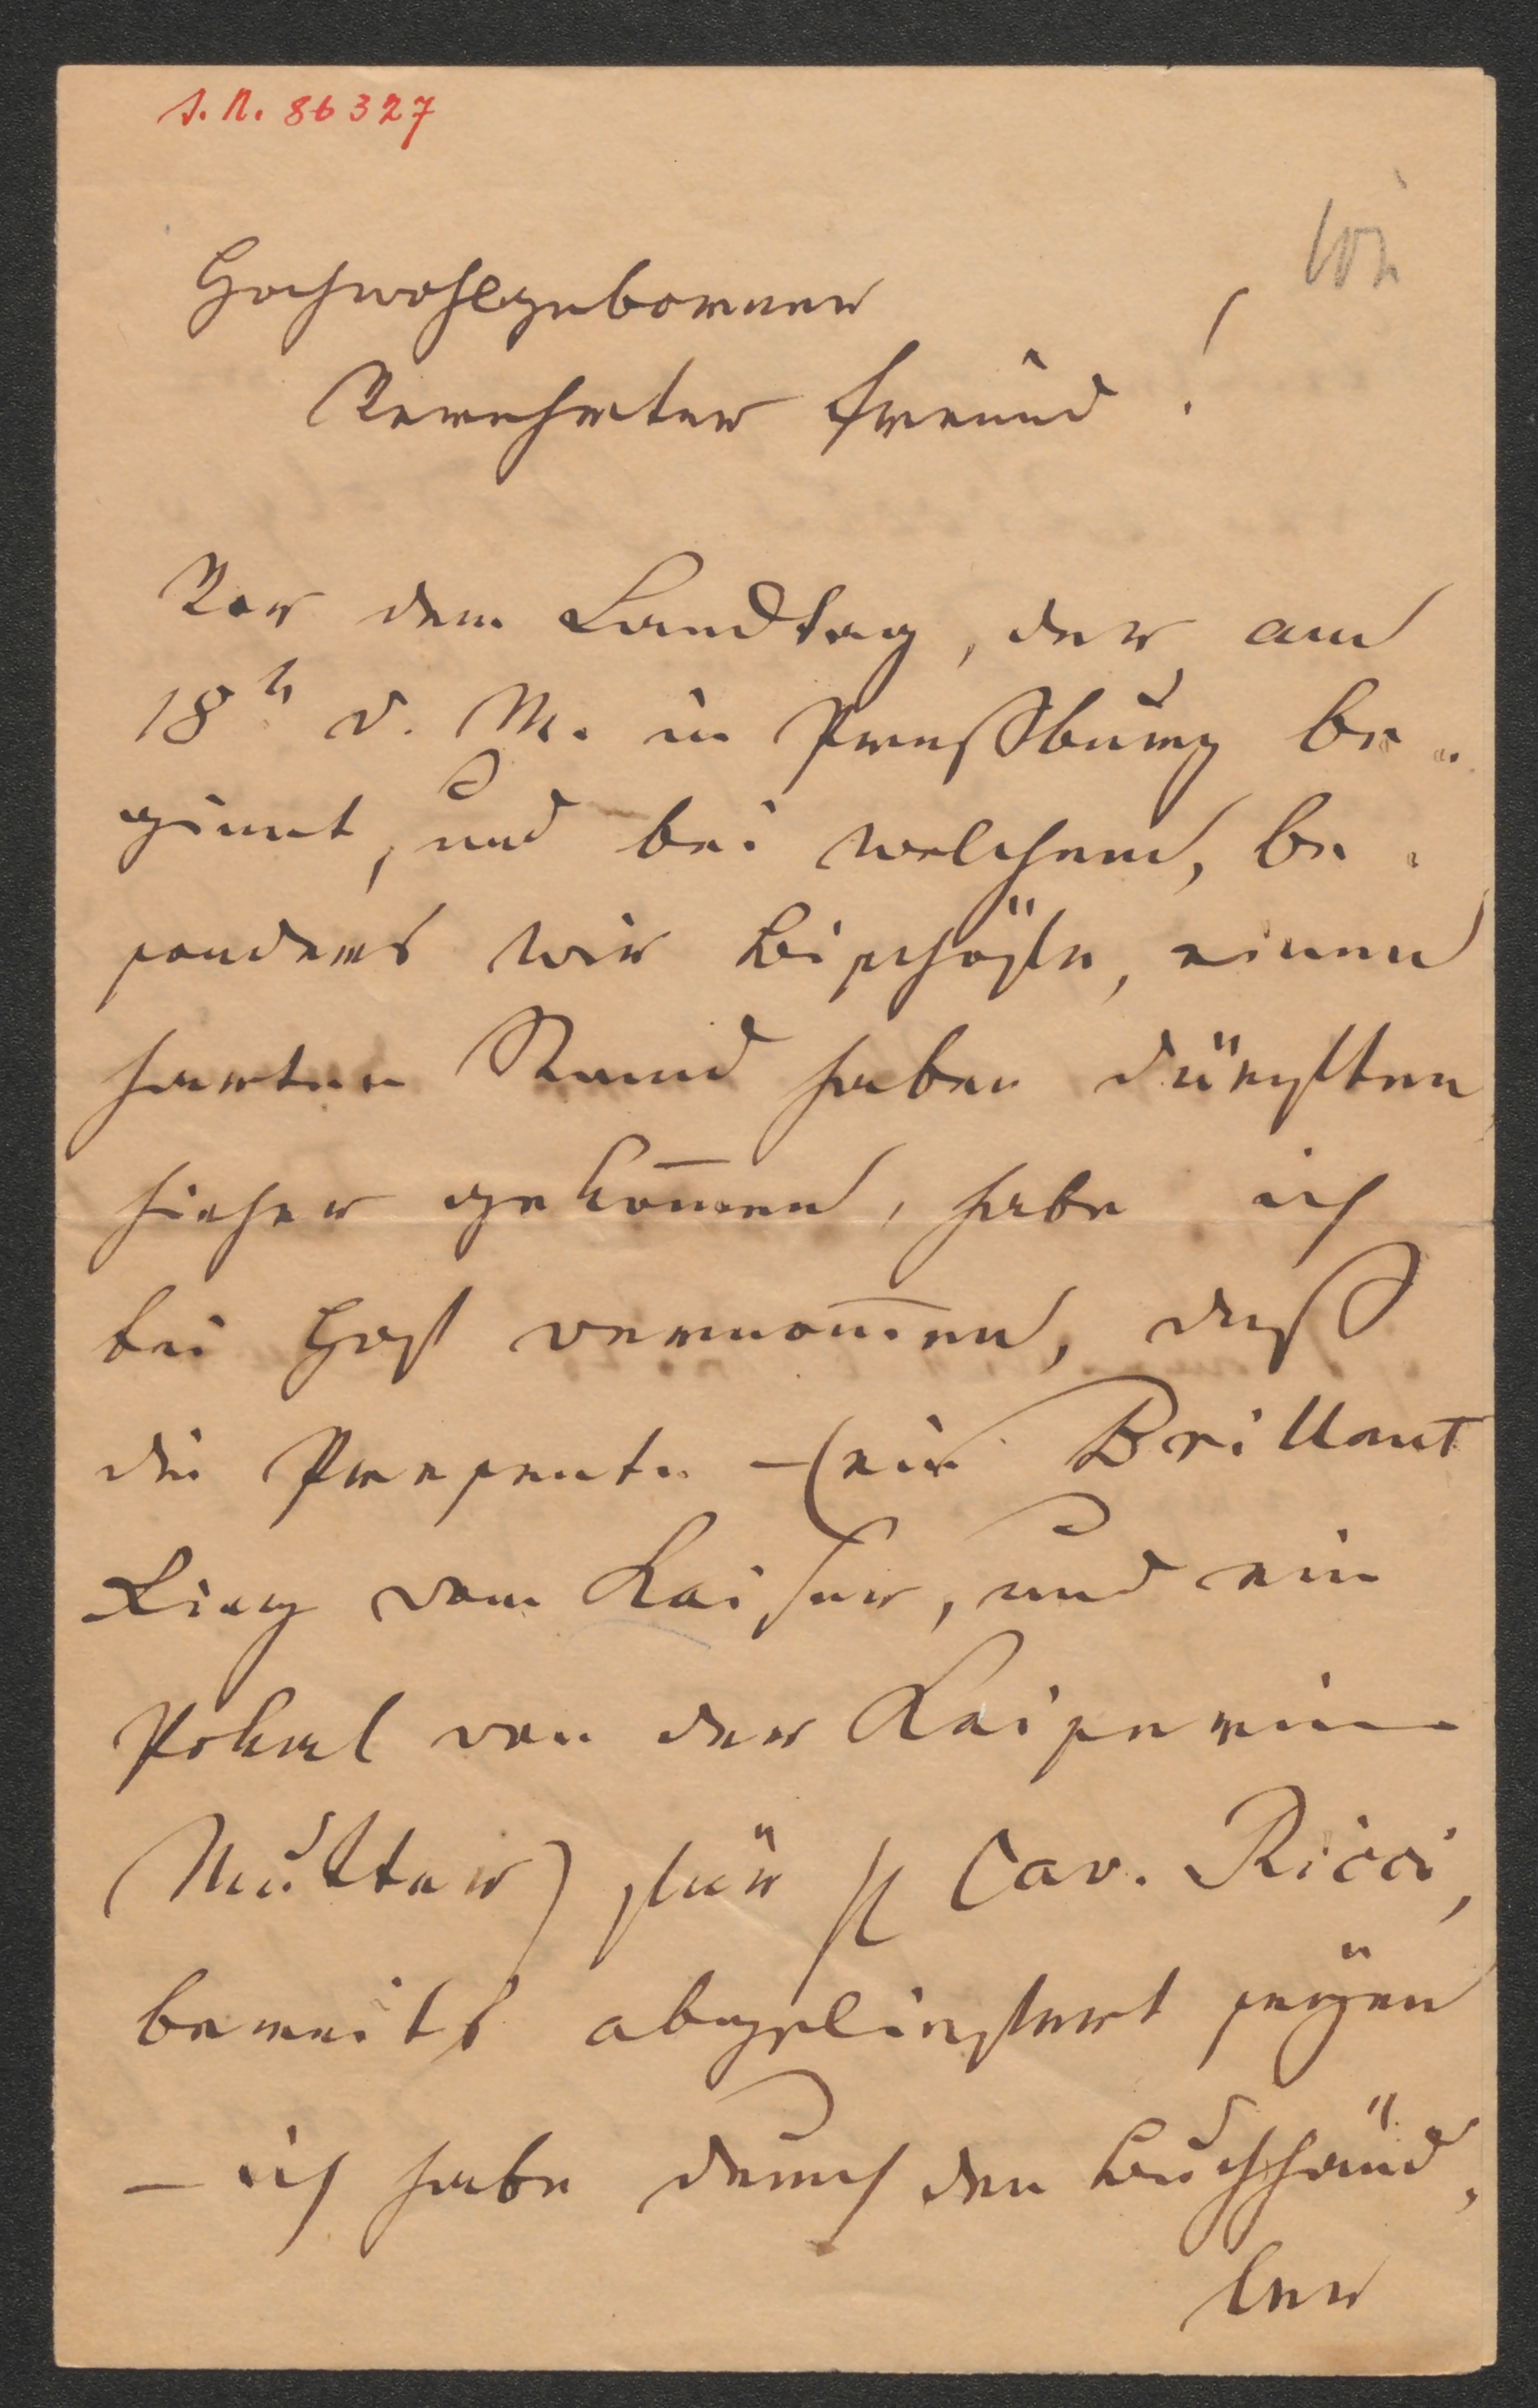 J. N. 86327
Hochwohlgeborner
Verehrter Freund!
Vor dem Landtag, der am
18t d. M. in Preßburg be-
ginnt, und bei welchem, be-
sonders wir Bischöfe, einen
harten Stand haben dürften
hieher gekom̅en, habe ich
bei Hof vernom̅en, daß
die Presente – (ein Brillant
Ring vom Kaiser, und ein
Pokal von der Kaiserin
Mutter) für H Cav. Ricci,
bereits abgeliefert seÿen
– ich habe durch den Buchhänd-
ler